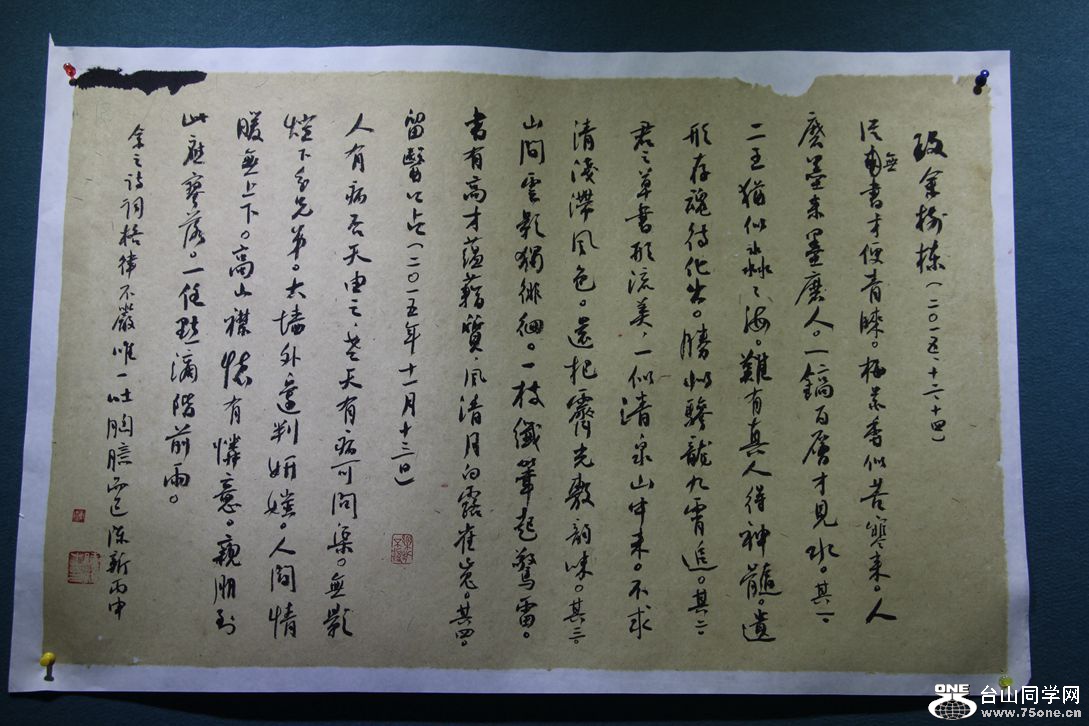 致余梅栋(二〇一五、十二、十四)
從無書才便青睞。梅蕊香似苦寒来。人
磨墨来墨磨人。一鎬百層才見水。其一、
二王猶似淼淼海。難有真人得神髓。遺
形存魂待化出。勝似驂龍九霄追。其二、
君之草書形流美，一似清泉山中来。不求
清淺滯風色。還把霽光敷韵味。其三、
山間雲影獨徘徊。一枝纖筆起驚雷。
書有高才蘊藉質，風清月白露崔嵬。其四。
留醫口占(二〇一五年十一月十三日)
人有病否天由之，莫天有病可問渠。無影
燈下多兄弟。大墙外邊判妍媸。人間情
暖無上下。高山襟懷有憐意。親朋到
此應寥落。一任點滴階前雨。
余之詩詞格律不嚴唯一吐胸臆而已 陈新丙申
ONE 台山同学网
www.75one.cn